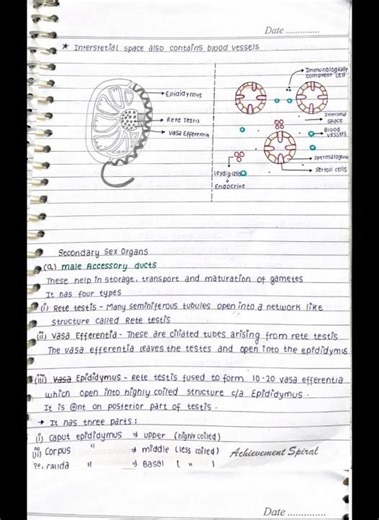 Date ..............
* Interstetial space also contains blood vessels
Epididymus
Rete Testis
Vasa Efferentia
Immunologically
competent cell
Interstitial
space
Blood
vessels
Spermatogonia
Sertoli cells
Leydig cells
Endocrine
Secondary Sex Organs
(a) male Accessory ducts
These help in storage, transport and maturation of gametes
It has four types
(i) Rete testis - Many seminiferous tubules open into a network like
structure called Rete testis
(ii) Vasa Efferentia - These are ciliated tubes arising from rete testis
The vasa efferentia leaves the testes and open into the epididymus
(iii) Vasa Epididymus - Rete testis fused to form 10-20 vasa efferentia
which open into highly coiled structure c/a Epididymus.
It is on posterior part of testis.
→ It has three parts:
(i) Caput epididymus → upper (highly coiled)
(ii) Corpus " → middle (less coiled)
Achievement Spiral
cauda " → Basal ( " )
Date ..............